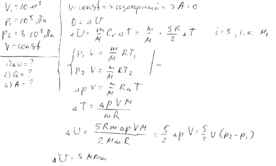 V₁ = 10 м³
P₁ = 10⁵ Па
P₂ = 3·10⁵ Па
V = const
1) ΔU = ?
2) Q = ?
3) A = ?
V = const → изохорный → A = 0
Q = ΔU
ΔU = m/M Cᵥ ΔT = m/M · 5R/2 ΔT i = 5, т.к.
P₁V = m/M RT₁
P₂V = m/M RT₂
ΔpV = m/M RΔT
ΔT = ΔpVM / mR
ΔU = 5RmΔpVM / 2MmR = 5/2 ΔpV = 5/2 V(p₂ - p₁)
ΔU = 5